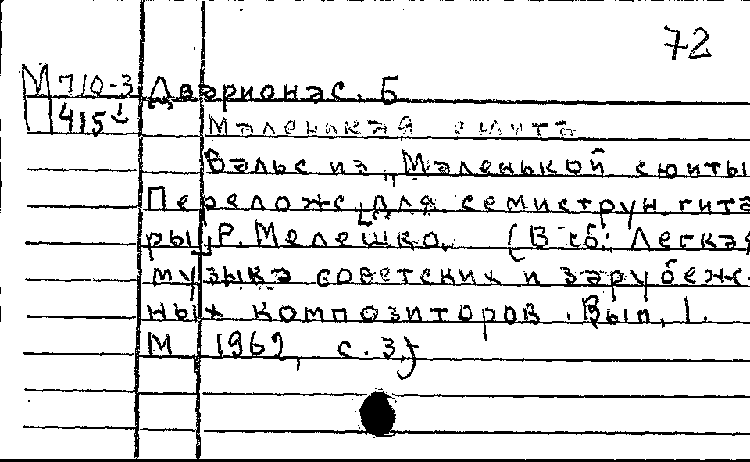 72
М 710-3 Дварионас. Б
415
Маленькая сюита
Вальс из „Маленькой сюиты
Перелож. [для семиструн. гита
ры] Р. Мелешко. (В сб: Легкая
музыка советских и зарубеж-
ных композиторов. Вып. 1.
М 1962, с. 3)